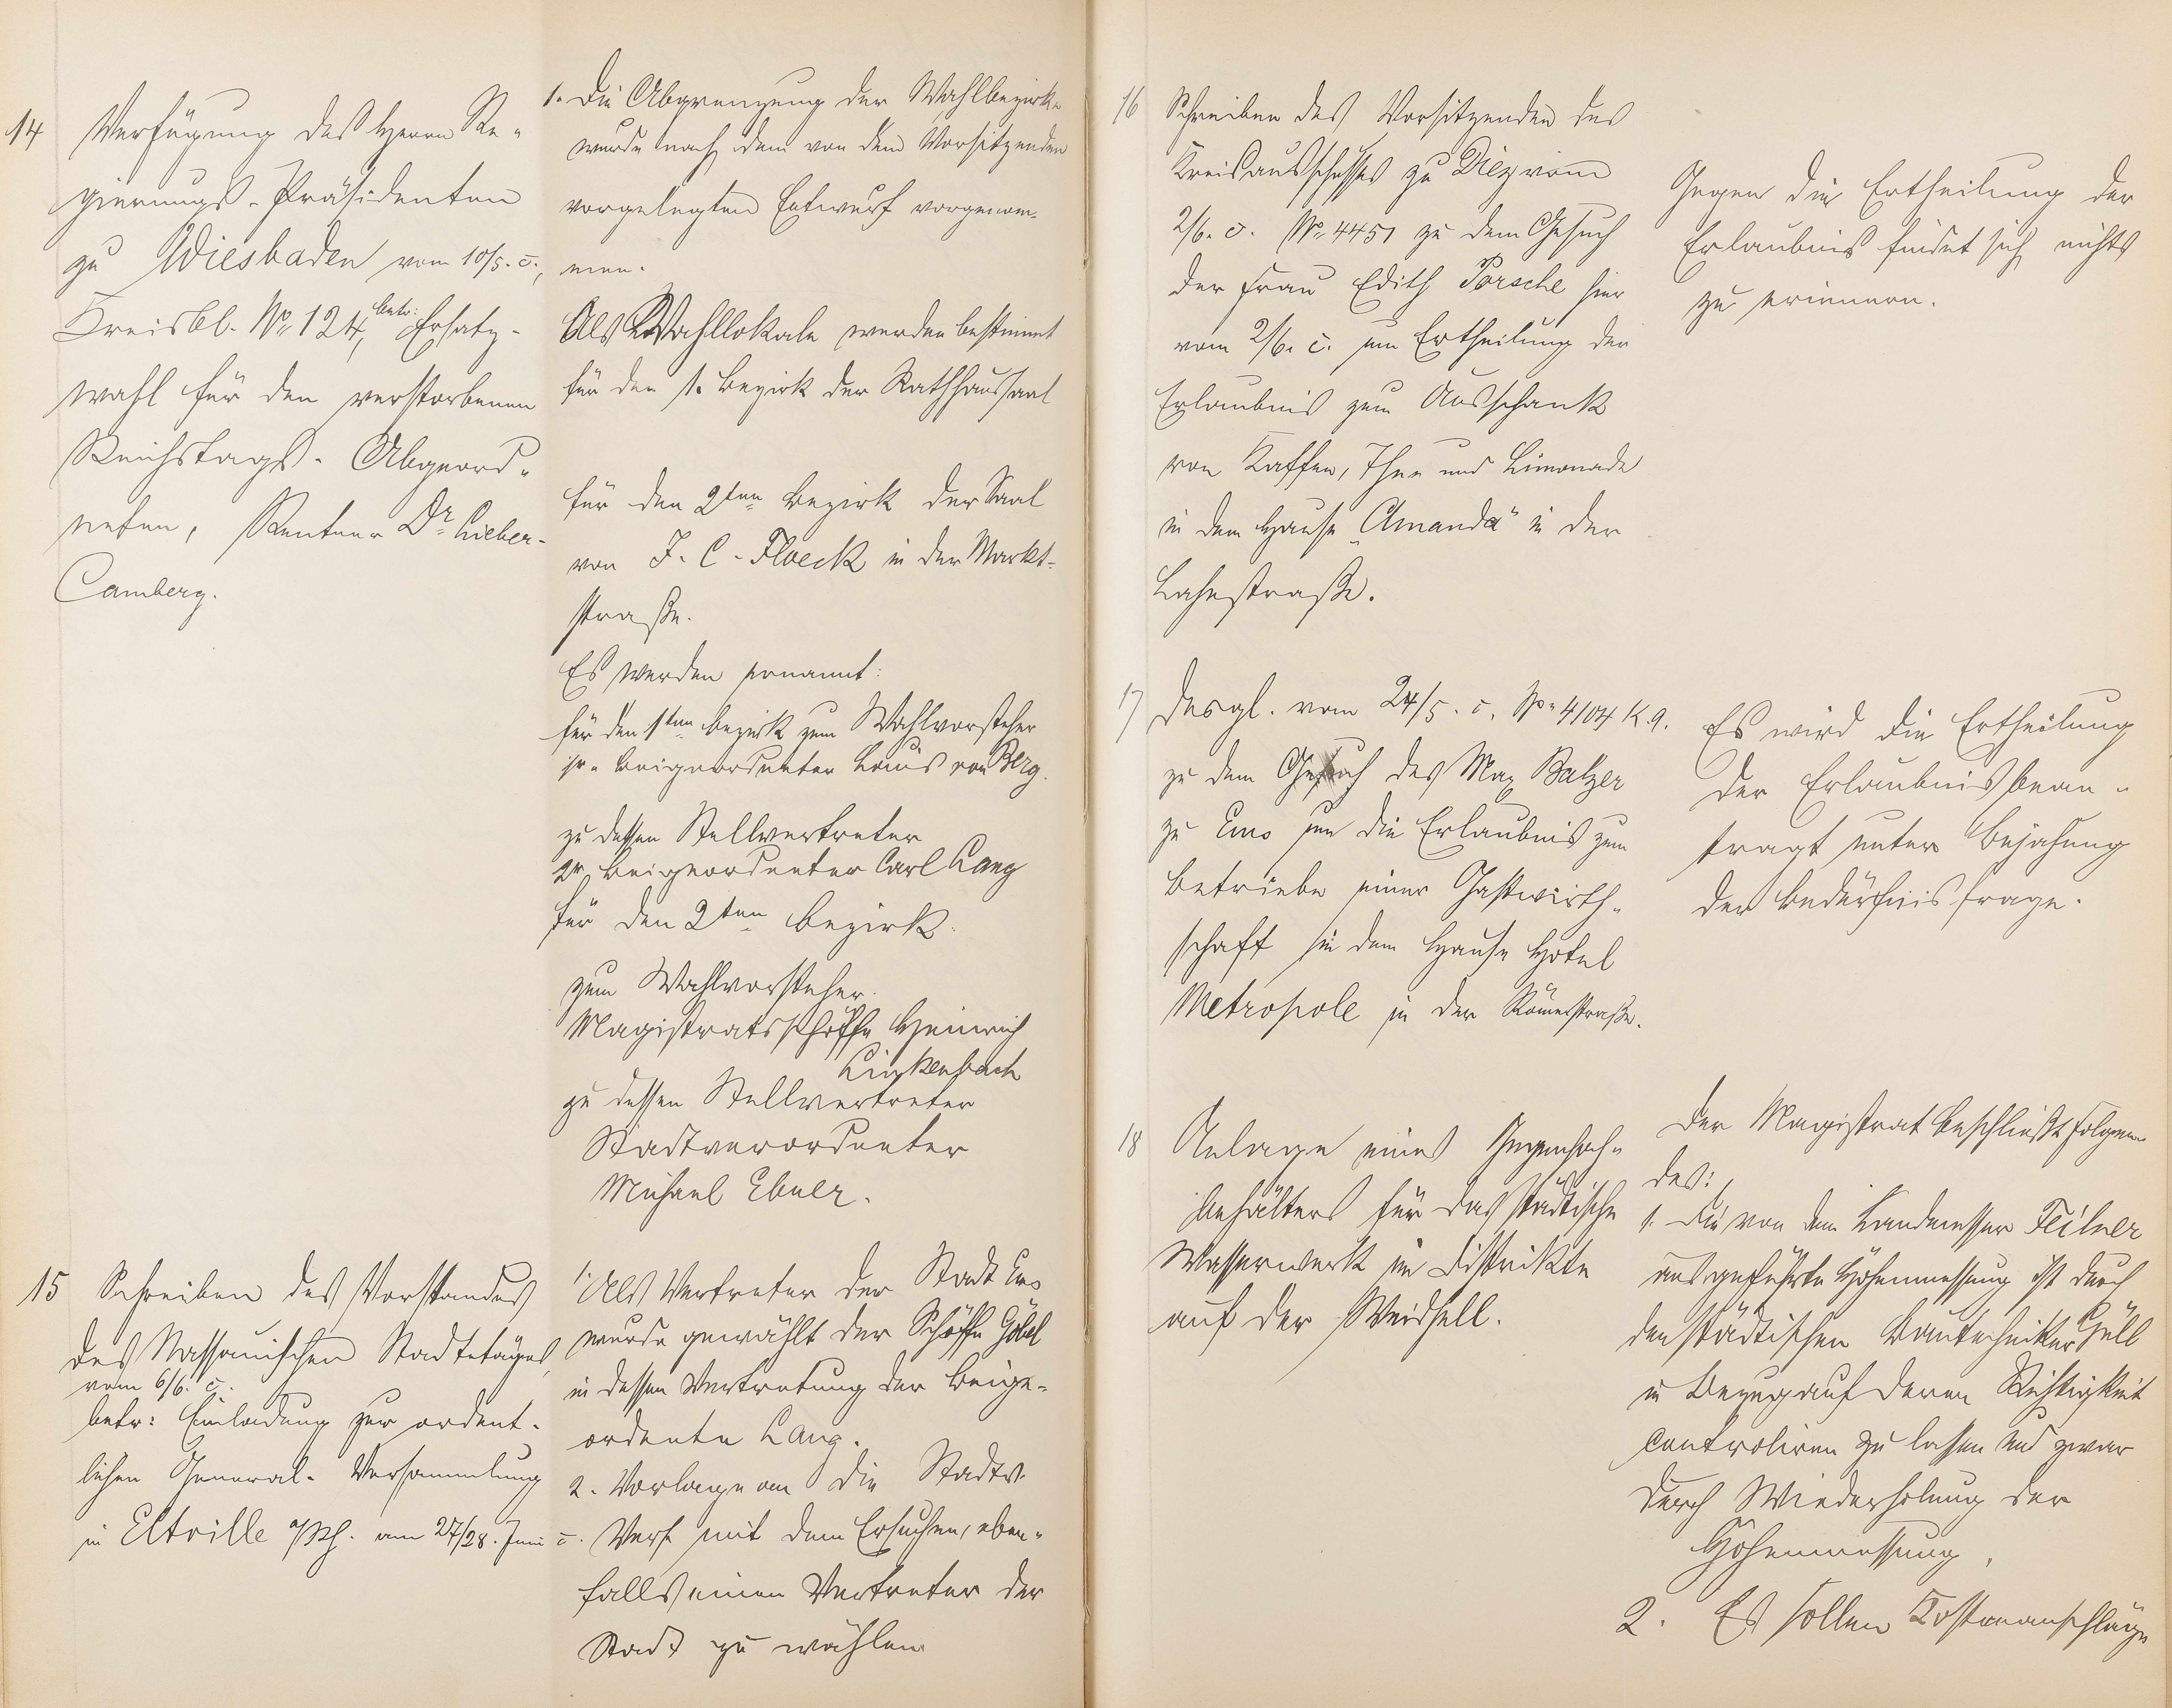 14
Verfügung des Herrn Re-
gierungs-Präsidenten
zu Wiesbaden vom 10/5. c.,
Kreisbl. No 124, betr: Ersatz-
wahl für den verstorbenen
Reichstags-Abgeord-
neten, Rentner Dr Lieber-
Camberg.
1. Die Abgrenzung der Wahlbezirke
wurde nach dem von dem Vorsitzenden
vorgelegten Entwurf vorgenom-
men.
Als Wahllokale werden bestimmt
für den 1. Bezirk der Rathhaussaal
für den 2ten Bezirk der Saal
von J. C. Floeck in der Markt-
straße.
Es werden ernannt:
für den 1ten Bezirk zum Wahlvorsteher
Beigeordneter Louis von Berg.
zu dessen Stellvertreter
2r Beigeordneter Carl Lang
für den 2ten Bezirk.
zum Wahlvorsteher
Magistratsschöffe Heinrich
Linkenbach
zu dessen Stellvertreter
Stadtverordneter
Michael Ebner.
15
Schreiben des Vorstandes
des Nassauischen Städtetages
vom 6/6. c.
betr: Einladung zur ordent-
lichen General-Versammlung
in Eltville a/Rh. am 27/28. Juni c.
1. Als Vertreter der Stadt Ems
wurde gewählt der Schöffe Göbel
in dessen Vertretung der Beige-
ordnete Lang.
2. Vorlage an die Stadtv.
Vers. mit dem Ersuchen, eben-
falls einen Vertreter der
Stadt zu wählen
16
Schreiben des Vorsitzenden des
Kreisausschusses zu Diez vom
2/6. c. No 4451 zu dem Gesuch
der Frau Edith Porsche hier
vom 2/6. c. um Ertheilung der
Erlaubnis zum Ausschank
von Kaffee, Thee und Limonade
in dem Hause „Amanda" in der
Lahnstraße.
Gegen die Ertheilung der
Erlaubnis findet sich nichts
zu erinnern.
17
Desgl. vom 24/5. c. No 4104 K.A.
zu dem Gesuch des Max Balzer
zu Ems um die Erlaubnis zum
Betriebe einer Gastwirth-
schaft in dem Hause Hotel
Metropole in der Römerstraße.
Es wird die Ertheilung
der Erlaubnis bean-
tragt unter Bejahung
der Bedürfnisfrage.
18
Anlage eines Gegenhoch-
behälters für das städtische
Wasserwerk im Distrikte
auf der Weidhell.
Der Magistrat beschließt folgen-
des:
1. Die von dem Landmesser Feilner
ausgeführte Höhenmessung ist durch
den städtischen Bautechniker Güll
in Bezug auf deren Richtigkeit
controliren zu lassen und zwar
durch Wiederholung der
Höhenmessung,
2. Es sollen Kostenanschläge